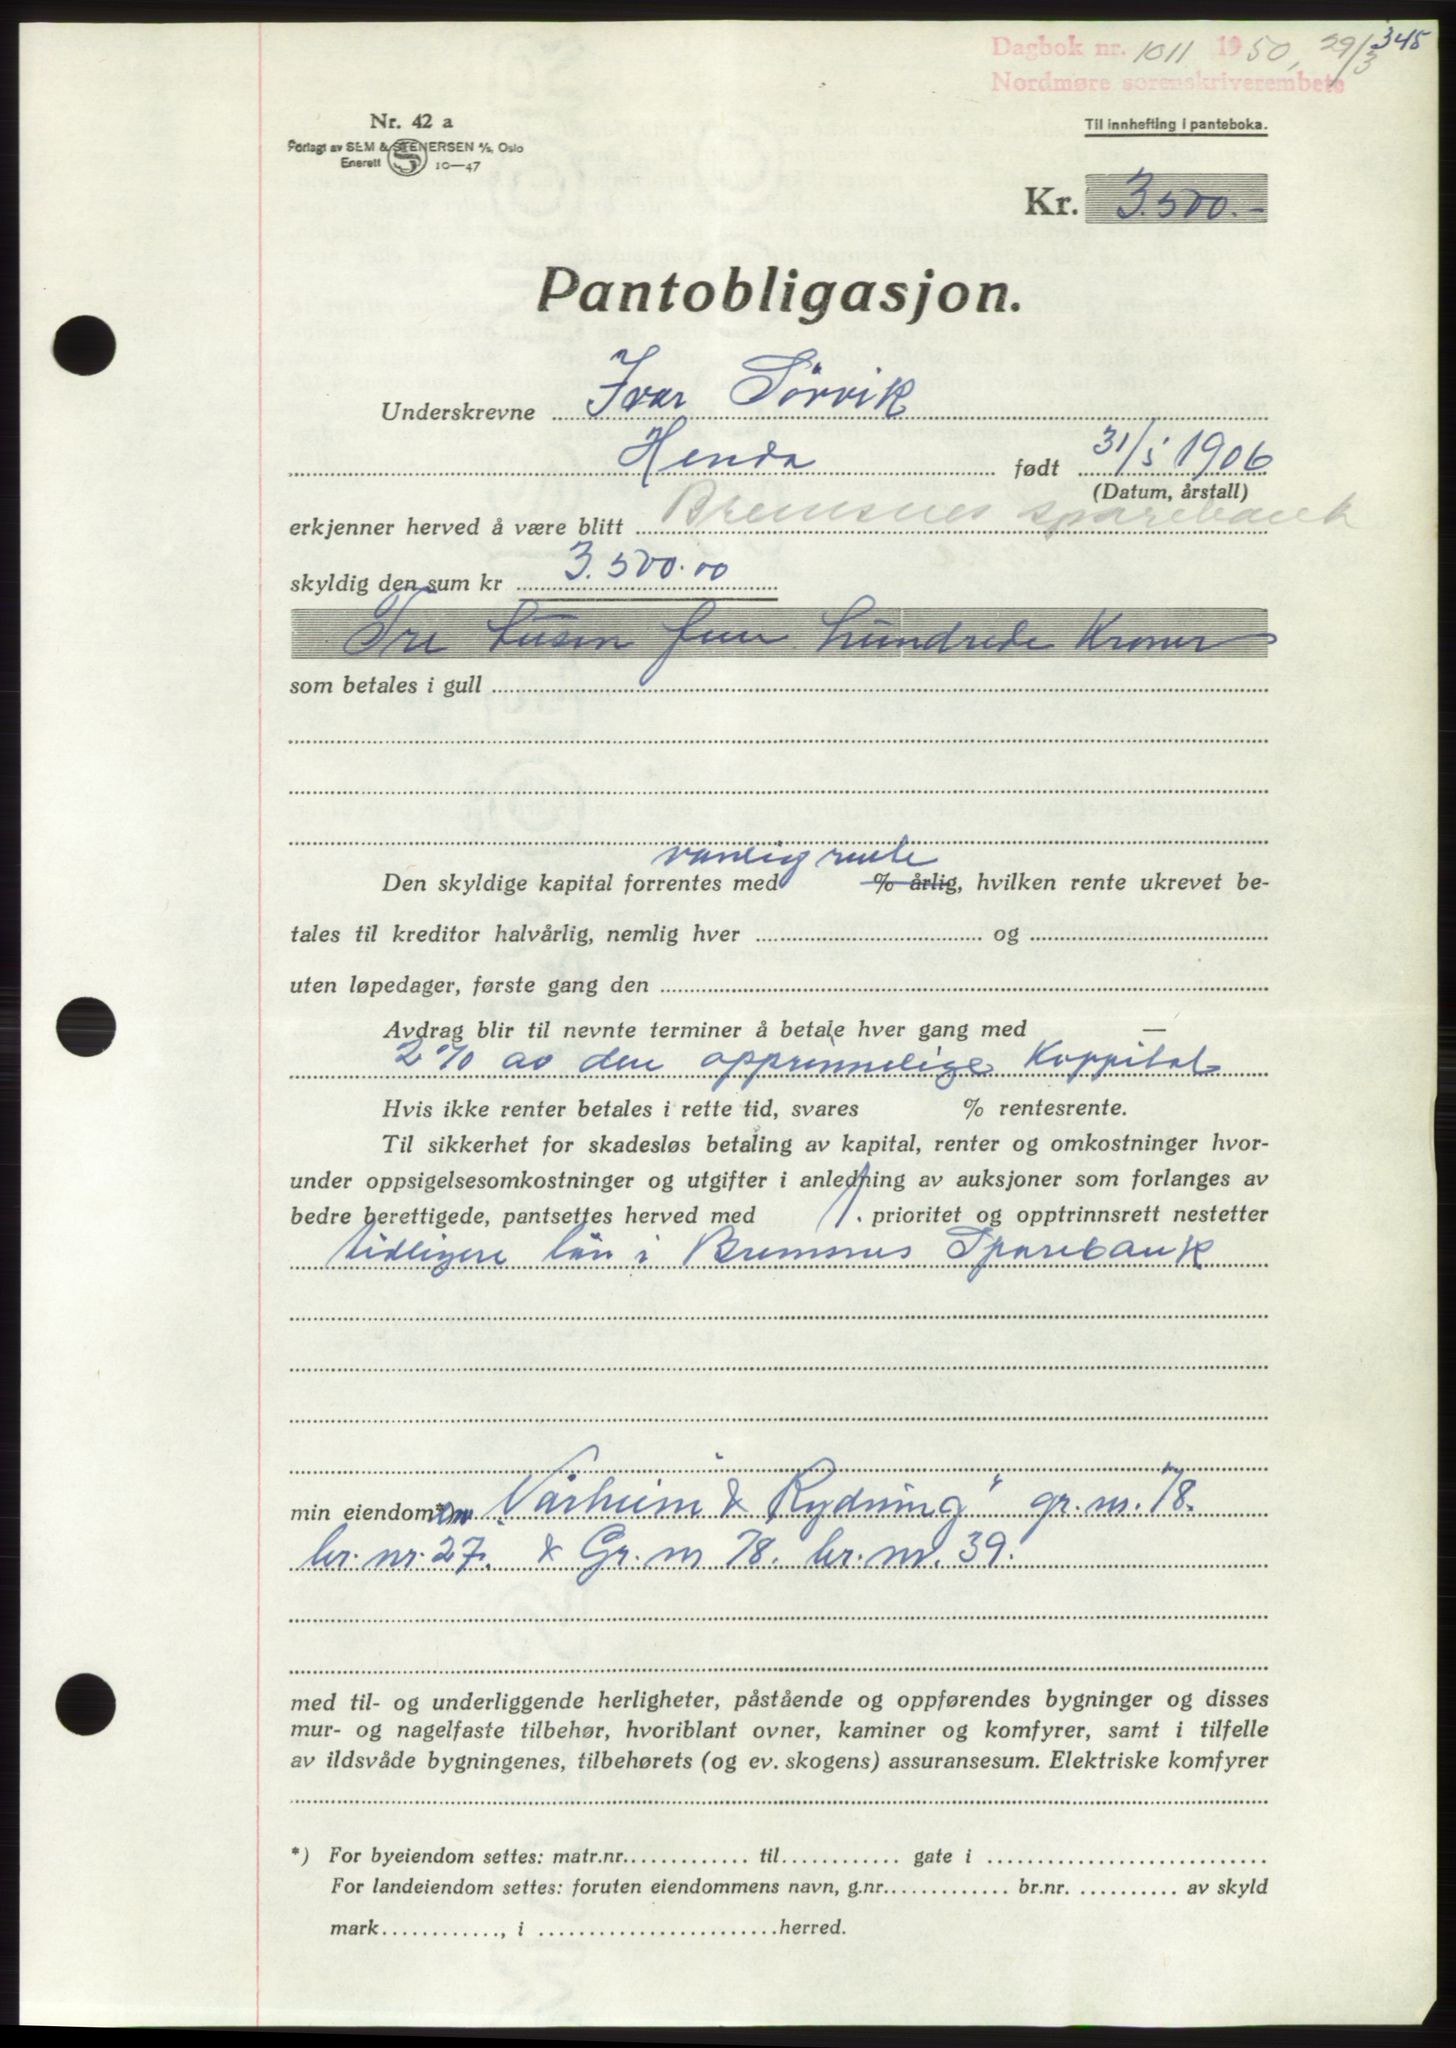 345
Dagbok nr. 1011 1950, 29/3
Nordmøre sorenskriverembete
Nr. 42 a
Forlagt av SEM & STENERSEN A/S, Oslo
Enerett S 10—47
Til innhefting i panteboka.
Kr. 3.500.-
Pantobligasjon.
Underskrevne Ivar Sörvik
Henda født 31/5 1906
(Datum, årstall)
erkjenner herved å være blitt Bremsnes sparebank
skyldig den sum kr 3.500.00
Tre tusen fem hundrede Kroner
som betales i gull
vanlig rente
Den skyldige kapital forrentes med % årlig, hvilken rente ukrevet be-
tales til kreditor halvårlig, nemlig hver og
uten løpedager, første gang den
Avdrag blir til nevnte terminer å betale hver gang med —
2 % av den opprinnelige Kappital
Hvis ikke renter betales i rette tid, svares % rentesrente.
Til sikkerhet for skadesløs betaling av kapital, renter og omkostninger hvor-
under oppsigelsesomkostninger og utgifter i anledning av auksjoner som forlanges av
bedre berettigede, pantsettes herved med 1. prioritet og opptrinnsrett nestetter
tidligere lån i Bremsnes Sparebank
min eiendom*) "Vårheim & Rydning" gr. nr. 78.
br. nr. 27. & Gr. nr 78. br. nr. 39.
med til- og underliggende herligheter, påstående og oppførendes bygninger og disses
mur- og nagelfaste tilbehør, hvoriblant ovner, kaminer og komfyrer, samt i tilfelle
av ildsvåde bygningenes, tilbehørets (og ev. skogens) assuransesum. Elektriske komfyrer
*) For byeiendom settes: matr.nr. til gate i
For landeiendom settes: foruten eiendommens navn, g.nr. br.nr. av skyld
mark , i herred.